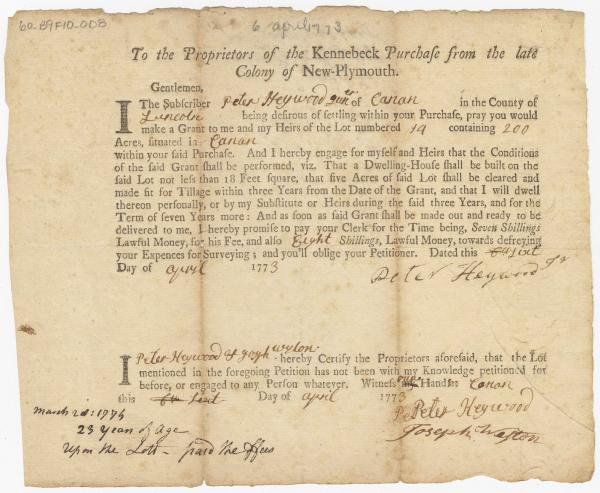 60-B9F10-008
6 april 1773
To the Proprietors of the Kennebeck Purchaſe from the late
Colony of New-Plymouth.
Gentlemen,
I The Subſcriber Peter Heywood Juner of Canan in the County of
Lincoln being deſirous of ſettling within your Purchaſe, pray you would
make a Grant to me and my Heirs of the Lot numbered 19 containing 200
Acres, ſituated in Canan
within your ſaid Purchaſe. And I hereby engage for myſelf and Heirs that the Conditions
of the ſaid Grant ſhall be performed, viz. That a Dwelling-Houſe ſhall be built on the
ſaid Lot not leſs than 18 Feet ſquare, that five Acres of ſaid Lot ſhall be cleared and
made fit for Tillage within three Years from the Date of the Grant, and that I will dwell
thereon perſonally, or by my Subſtitute or Heirs during the ſaid three Years, and for the
Term of ſeven Years more: And as ſoon as ſaid Grant ſhall be made out and ready to be
delivered to me, I hereby promiſe to pay your Clerk for the Time being, Seven Shillings
Lawful Money, for his Fee, and alſo Eight Shillings, Lawful Money, towards defreying
your Expences for Surveying; and you'll oblige your Petitioner. Dated this 6th
Day of april 1773 Peter Heywood Jr
I Peter Heywood & Joseph Weston hereby Certify the Proprietors aforeſaid, that the Lot
mentioned in the foregoing Petition has not been with my Knowledge petitioned for
before, or engaged to any Perſon whatever. Witneſs our Hands: Canan
this 6th Day of april 1773
Peter Heywood
Joseph Weston
march 28: 1774
23 Years of age
Upon the Lott - paid the ffees